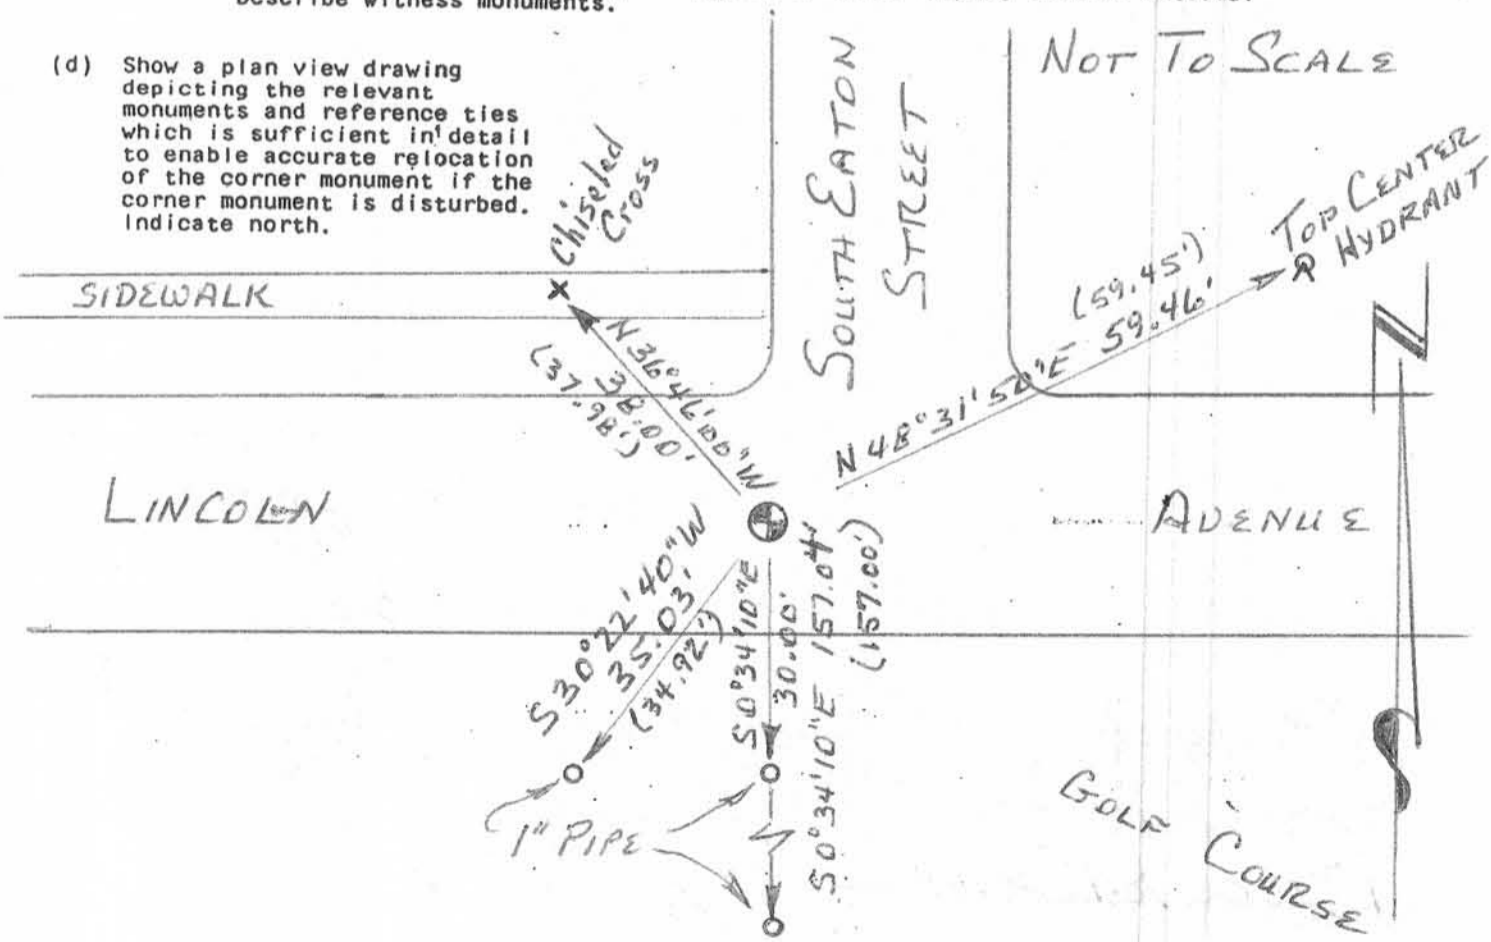 Describe witness monuments.
(d) Show a plan view drawing
depicting the relevant
monuments and reference ties
which is sufficient in detail
to enable accurate relocation
of the corner monument if the
corner monument is disturbed.
Indicate north.
NOT TO SCALE
SOUTH EATON
STREET
Chiseled
Cross
TOP CENTER
HYDRANT
SIDEWALK
(59.45')
N 48°31'50"E 59.46'
N 36°46'00"W
38.00'
(37.98')
N
LINCOLN
AVENUE
S 30°22'40"W
35.03'
(34.92')
S 0°34'10"E
30.00'
S 0°34'10"E 157.04'
(157.00')
1" PIPE
GOLF COURSE